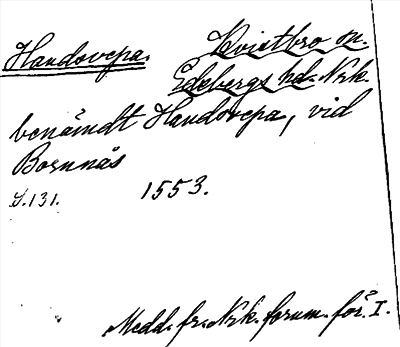 Handovepa. Kvistbro sn.
Edsbergs hd. Nrk.
benämdt Handovepa, vid
Bosnnäs
S. 131. 1553.
Medd. fr. Nrk. fornm. för. I.